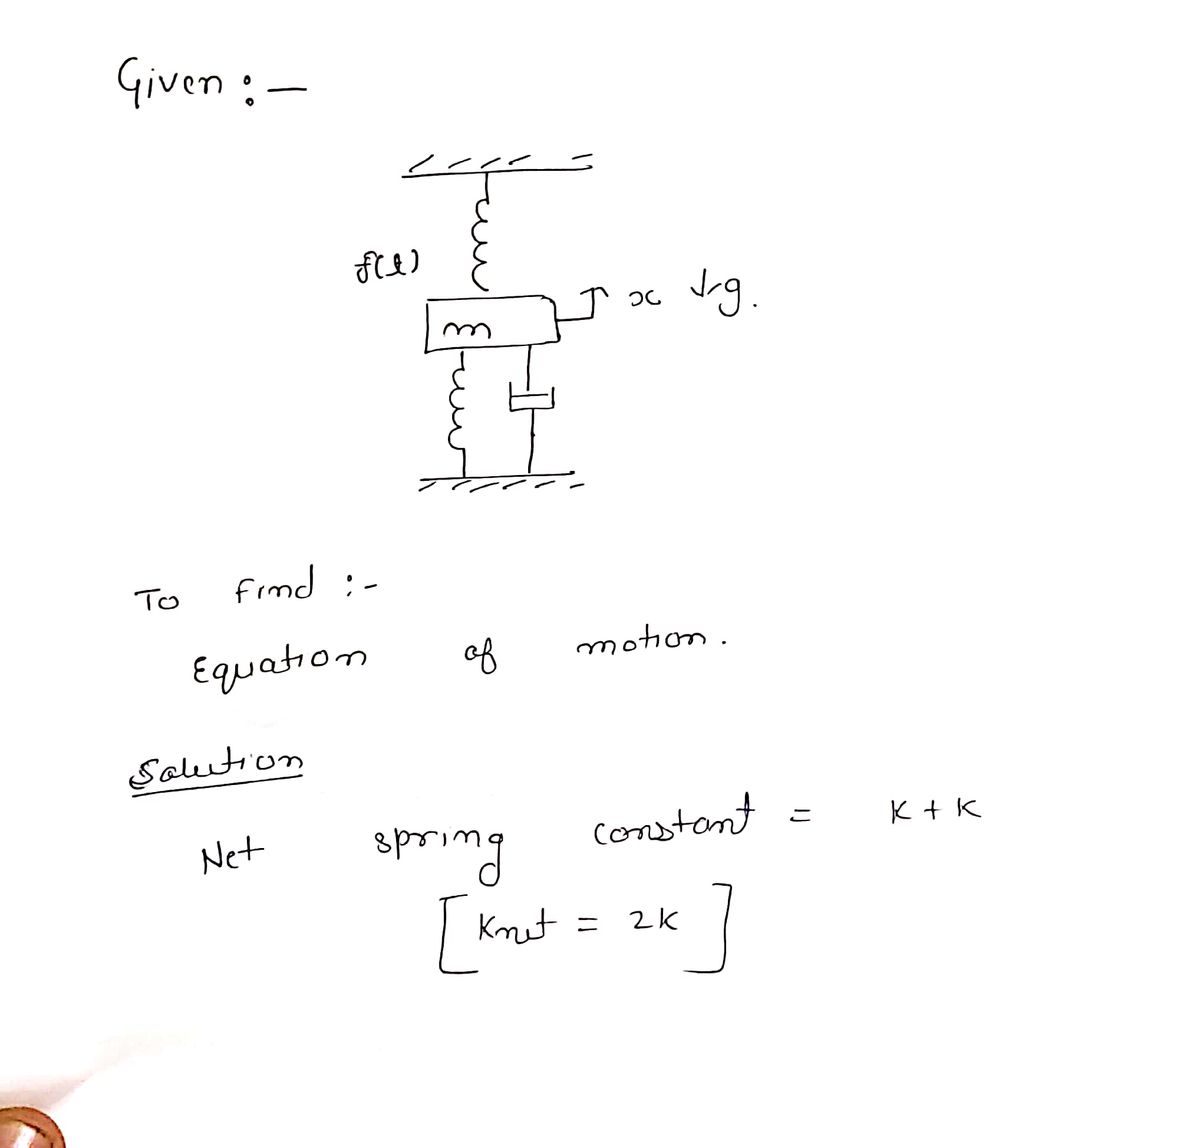 Given :-
f(t)
x ↓g.
m
To find :-
Equation of motion.
Solution
Net spring constant = K + K
[Knet = 2K]